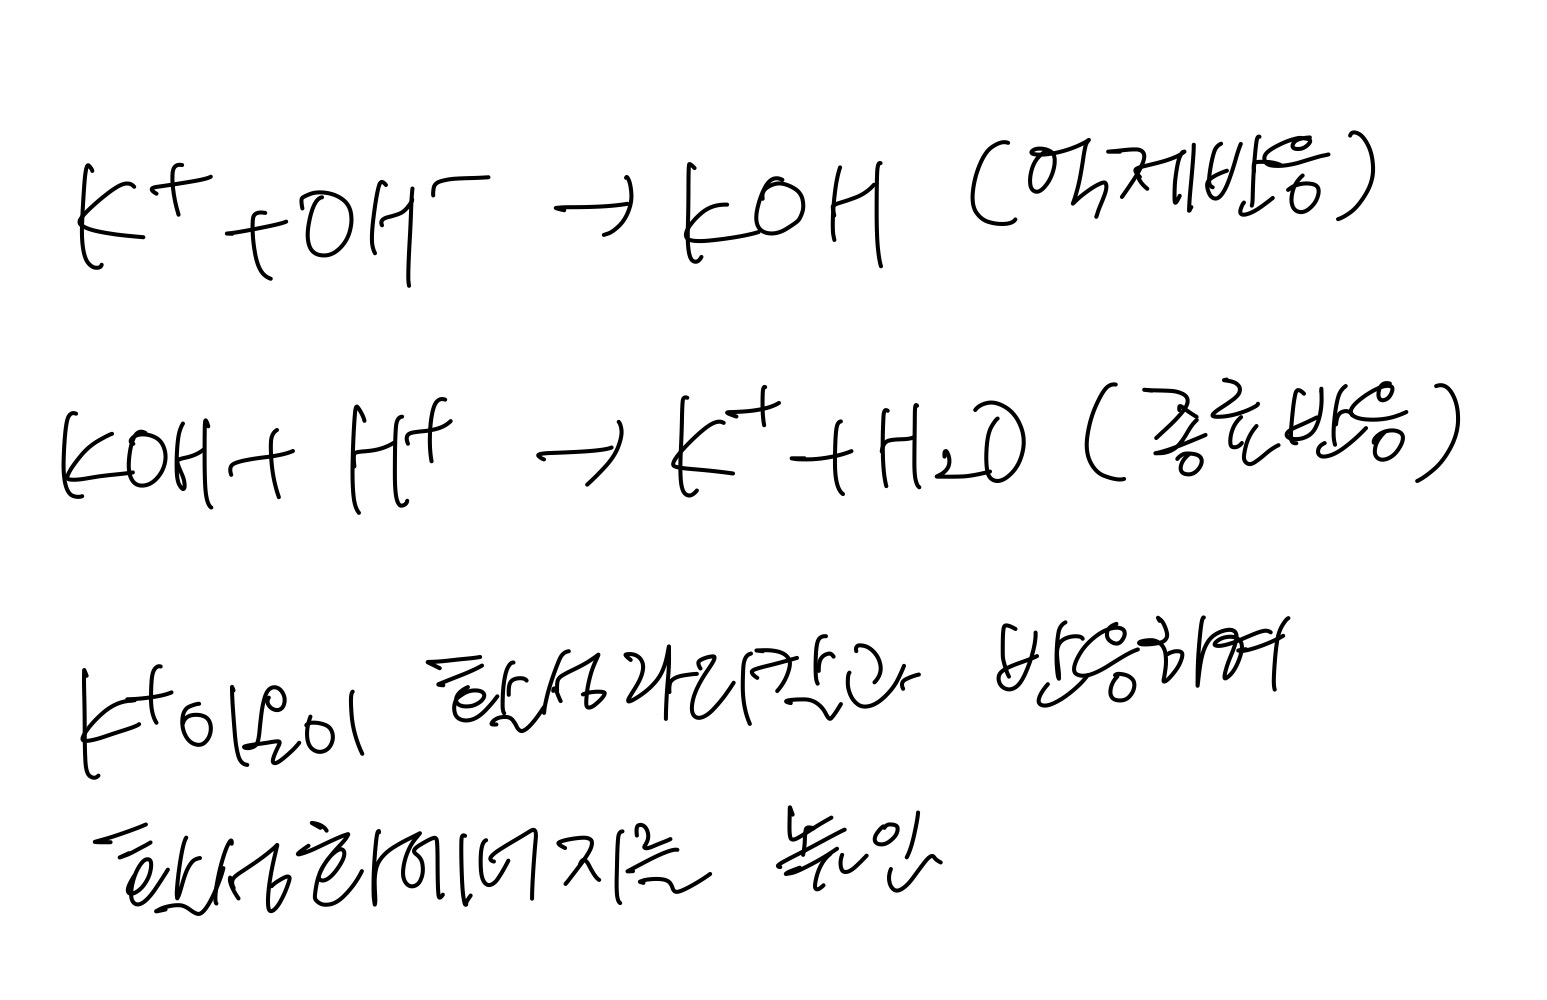 K⁺ + OH⁻ → KOH (억제반응)
KOH + H⁺ → K⁺ + H₂O (종료반응)
K⁺이온이 활성라디칼과 반응하여
활성화에너지를 높임